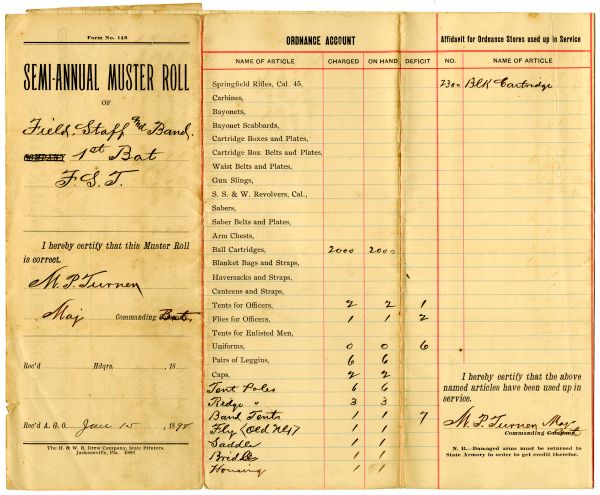 Form No. 148
SEMI-ANNUAL MUSTER ROLL
OF
Field, Staff and Band.
1st Bat
F. S. T.
I hereby certify that this Muster Roll
is correct.
M. P. Turner
Maj Commanding Bat.
Rec'd Hdqrs. , 18
Rec'd A. G. O. Jan 15 , 1898
The H. & W. B. Drew Company, State Printers,
Jacksonville, Fla.
ORDNANCE ACCOUNT
NAME OF ARTICLE CHARGED ON HAND DEFICIT
Springfield Rifles, Cal. 45,
Carbines,
Bayonets,
Bayonet Scabbards,
Cartridge Boxes and Plates,
Cartridge Box Belts and Plates,
Waist Belts and Plates,
Gun Slings,
S. S. & W. Revolvers, Cal.,
Sabers,
Saber Belts and Plates,
Arm Chests,
Ball Cartridges, 2000 2000
Blanket Bags and Straps,
Haversacks and Straps,
Canteens and Straps,
Tents for Officers, 2 2 1
Flies for Officers, 1 1 2
Tents for Enlisted Men,
Uniforms, 0 0 6
Pairs of Leggins, 6 6
Caps, 2 2
Tent Poles 6 6
Redge " 3 3
Band Tents 1 1 7
Fly (Old No 1) 1 1
Saddle 1 1
Bridles 1 1
Housing 1 1
Affidavit for Ordnance Stores used up in Service
NO. NAME OF ARTICLE
2300 Blk Cartridge
I hereby certify that the above
named articles have been used up in
service.
M. P. Turner Maj
Commanding Company.
N. B.—Damaged arms must be returned to
State Armory in order to get credit therefor.